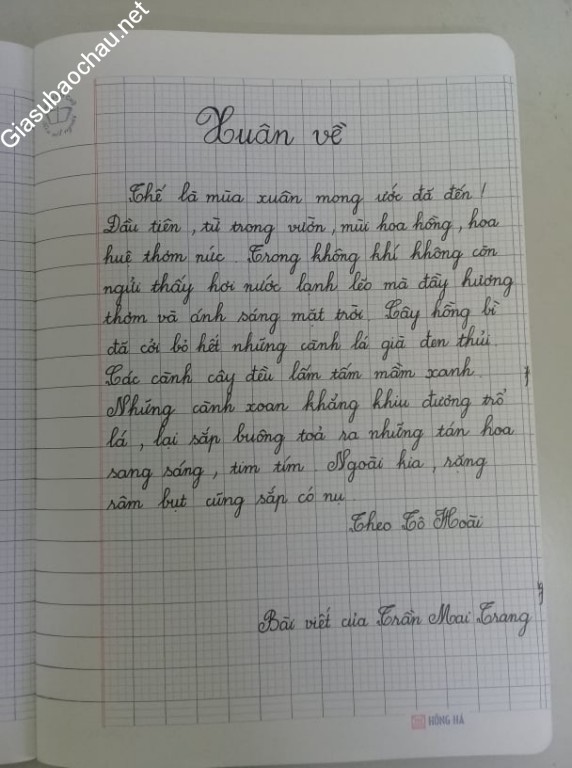 Giasubaochau.net
Xuân về
Thế là mùa xuân mong ước đã đến !
Đầu tiên , từ trong vườn , mùi hoa hồng , hoa
huệ thơm nức . Trong không khí không còn
ngửi thấy hơi nước lạnh lẽo mà đầy hương
thơm và ánh sáng mặt trời . Cây hồng bì
đã cởi bỏ hết những cành lá già đen thủi .
Các cành cây đều lấm tấm mầm xanh .
Những cành xoan khẳng khiu đương trổ
lá , lại sắp buông toả ra những tán hoa
sang sáng , tim tím . Ngoài kia , rặng
râm bụt cũng sắp có nụ .
Theo Tô Hoài
Bài viết của Trần Mai Trang
HỒNG HÀ